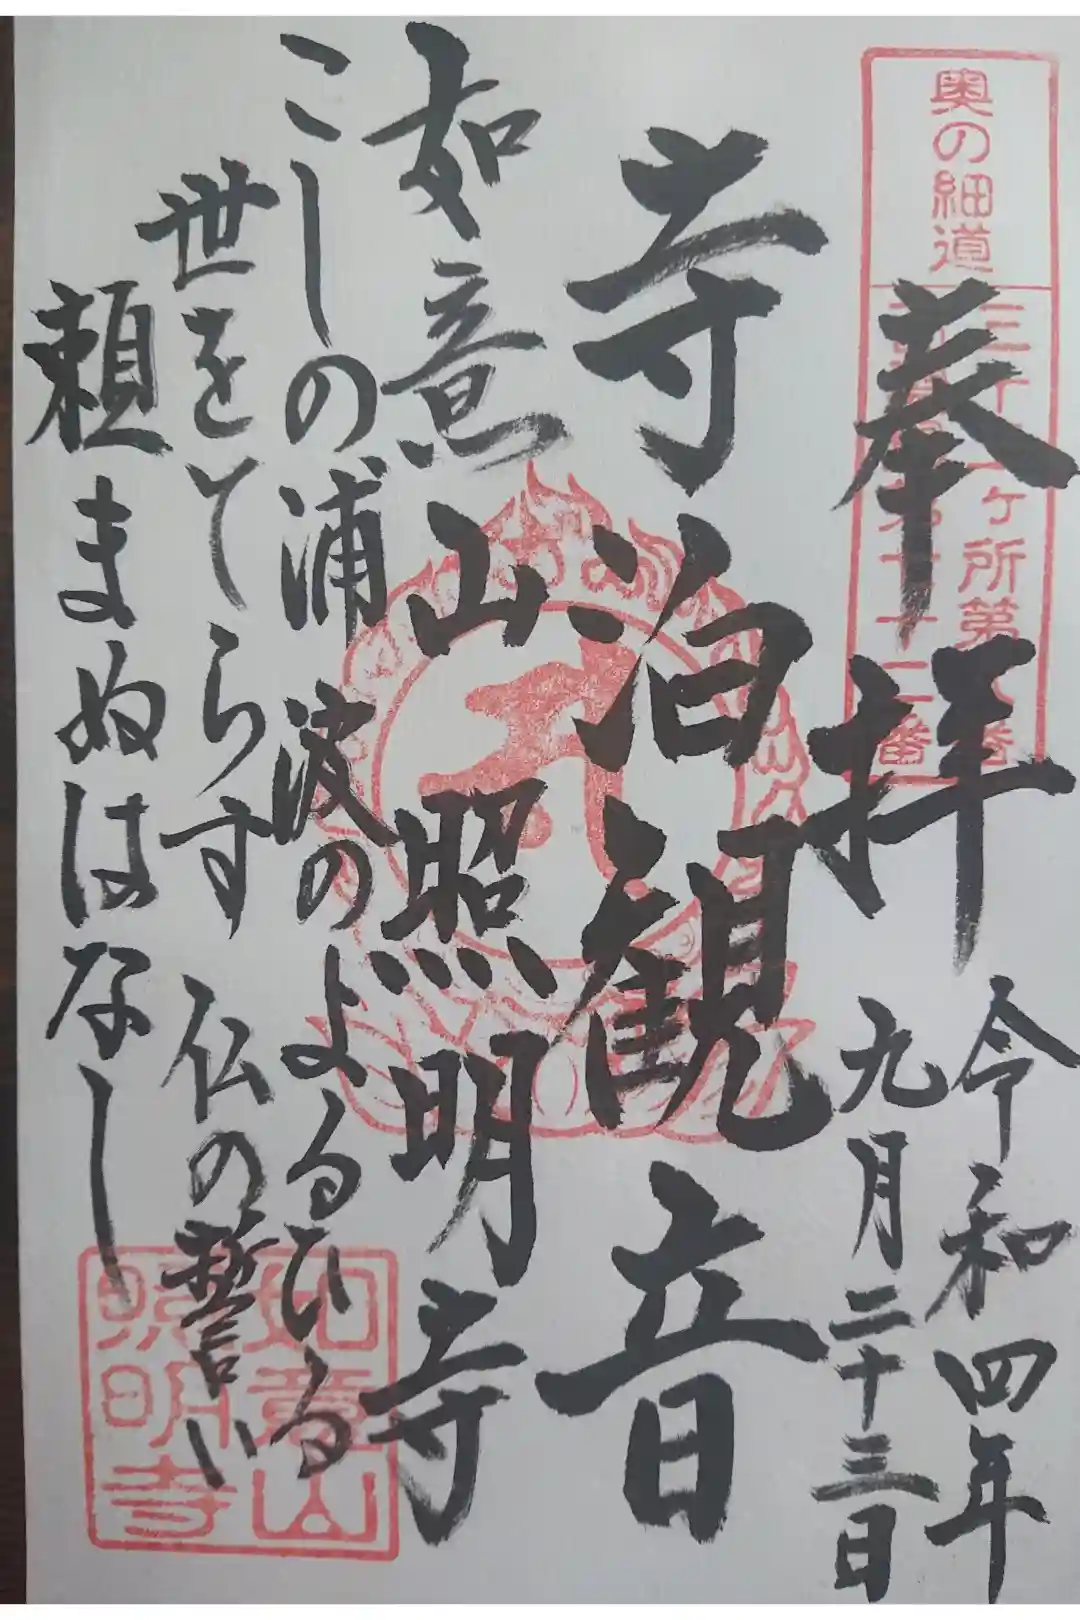 奉拝
令和四年
九月二十三日
奥の細道
三十三ヶ所第
十二番
寺泊観音
如意山照明寺
こしの浦 波のよるひる
世をてらす 仏の誓い
頼まぬはなし
如意山
照明寺